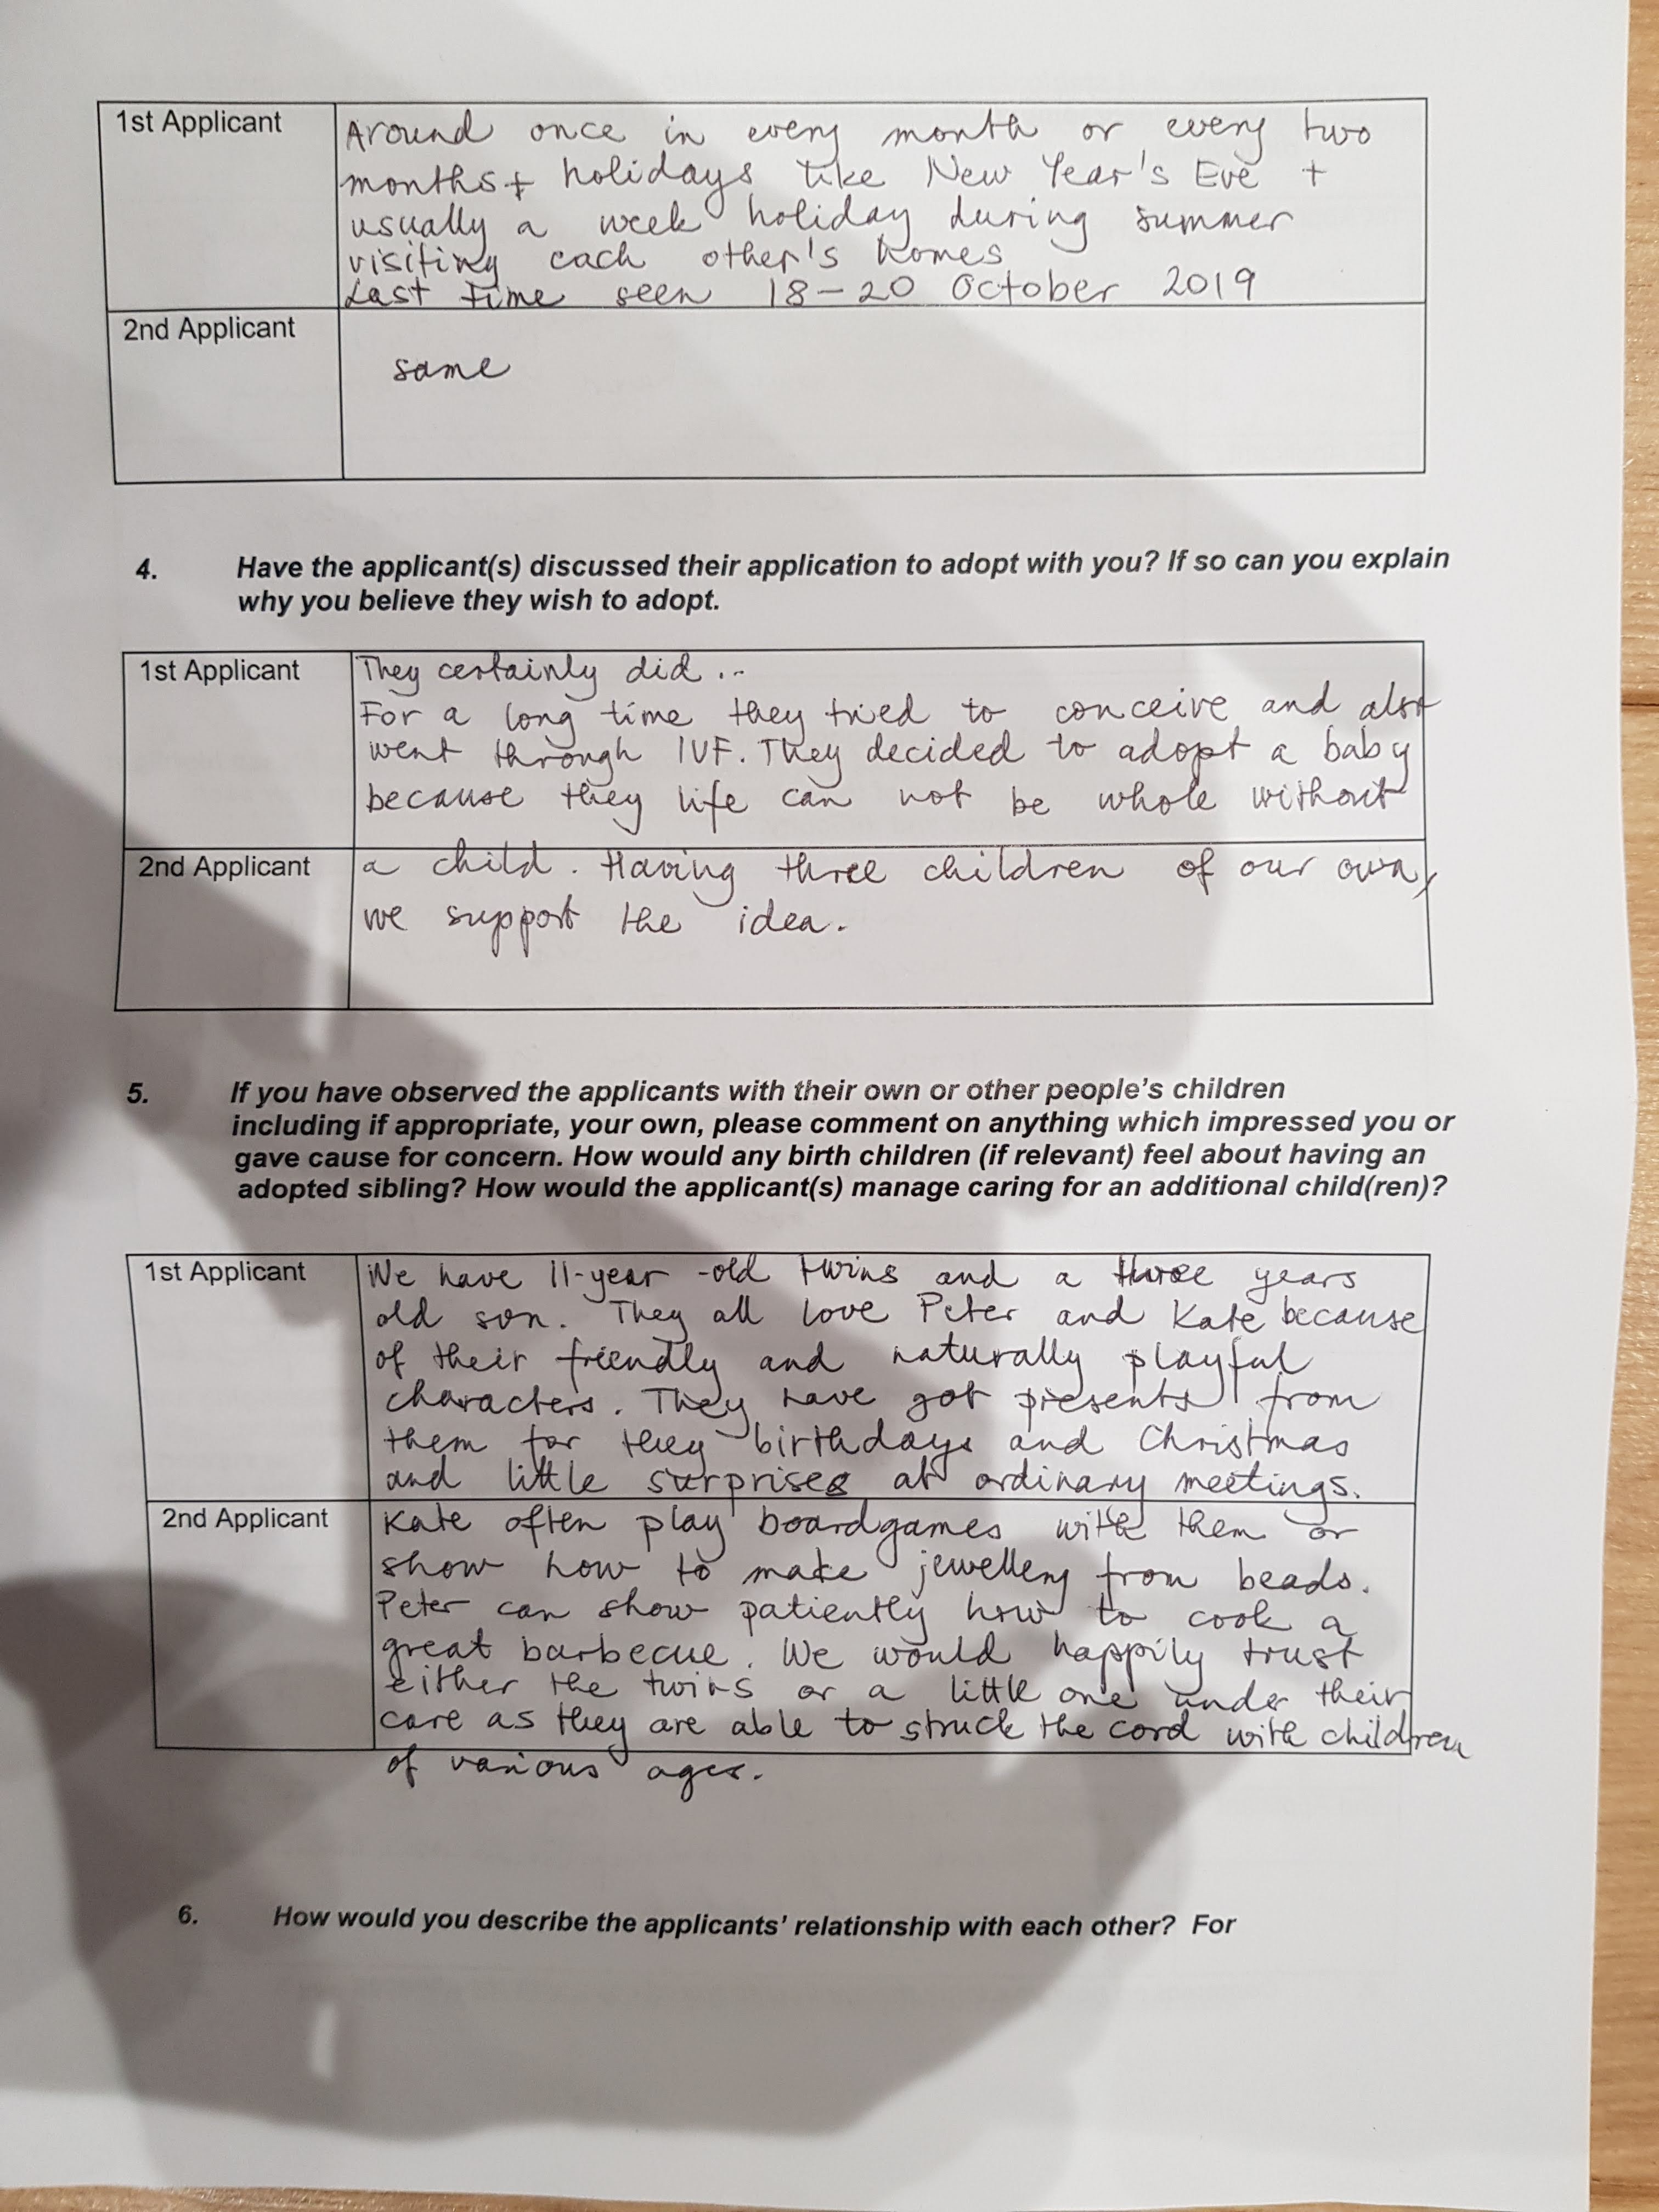 1st Applicant
Around once in every month or every two
months + holidays like New Year's Eve +
usually a week holiday during summer
visiting each other's homes
Last time seen 18-20 October 2019
2nd Applicant
same
4. Have the applicant(s) discussed their application to adopt with you? If so can you explain
why you believe they wish to adopt.
1st Applicant
They certainly did...
For a long time they tried to conceive and also
went through IVF. They decided to adopt a baby
because they life can not be whole without
2nd Applicant
a child. Having three children of our own,
we support the idea.
5. If you have observed the applicants with their own or other people's children
including if appropriate, your own, please comment on anything which impressed you or
gave cause for concern. How would any birth children (if relevant) feel about having an
adopted sibling? How would the applicant(s) manage caring for an additional child(ren)?
1st Applicant
We have 11-year-old twins and a three years
old son. They all love Peter and Kate because
of their friendly and naturally playful
characters. They have got presents from
them for they birthdays and Christmas
and little surprises at ordinary meetings.
2nd Applicant
Kate often play boardgames with them or
show how to make jewellery from beads.
Peter can show patiently how to cook a
great barbecue. We would happily trust
either the twins or a little one under their
care as they are able to struck the cord with children
of various ages.
6. How would you describe the applicants' relationship with each other? For